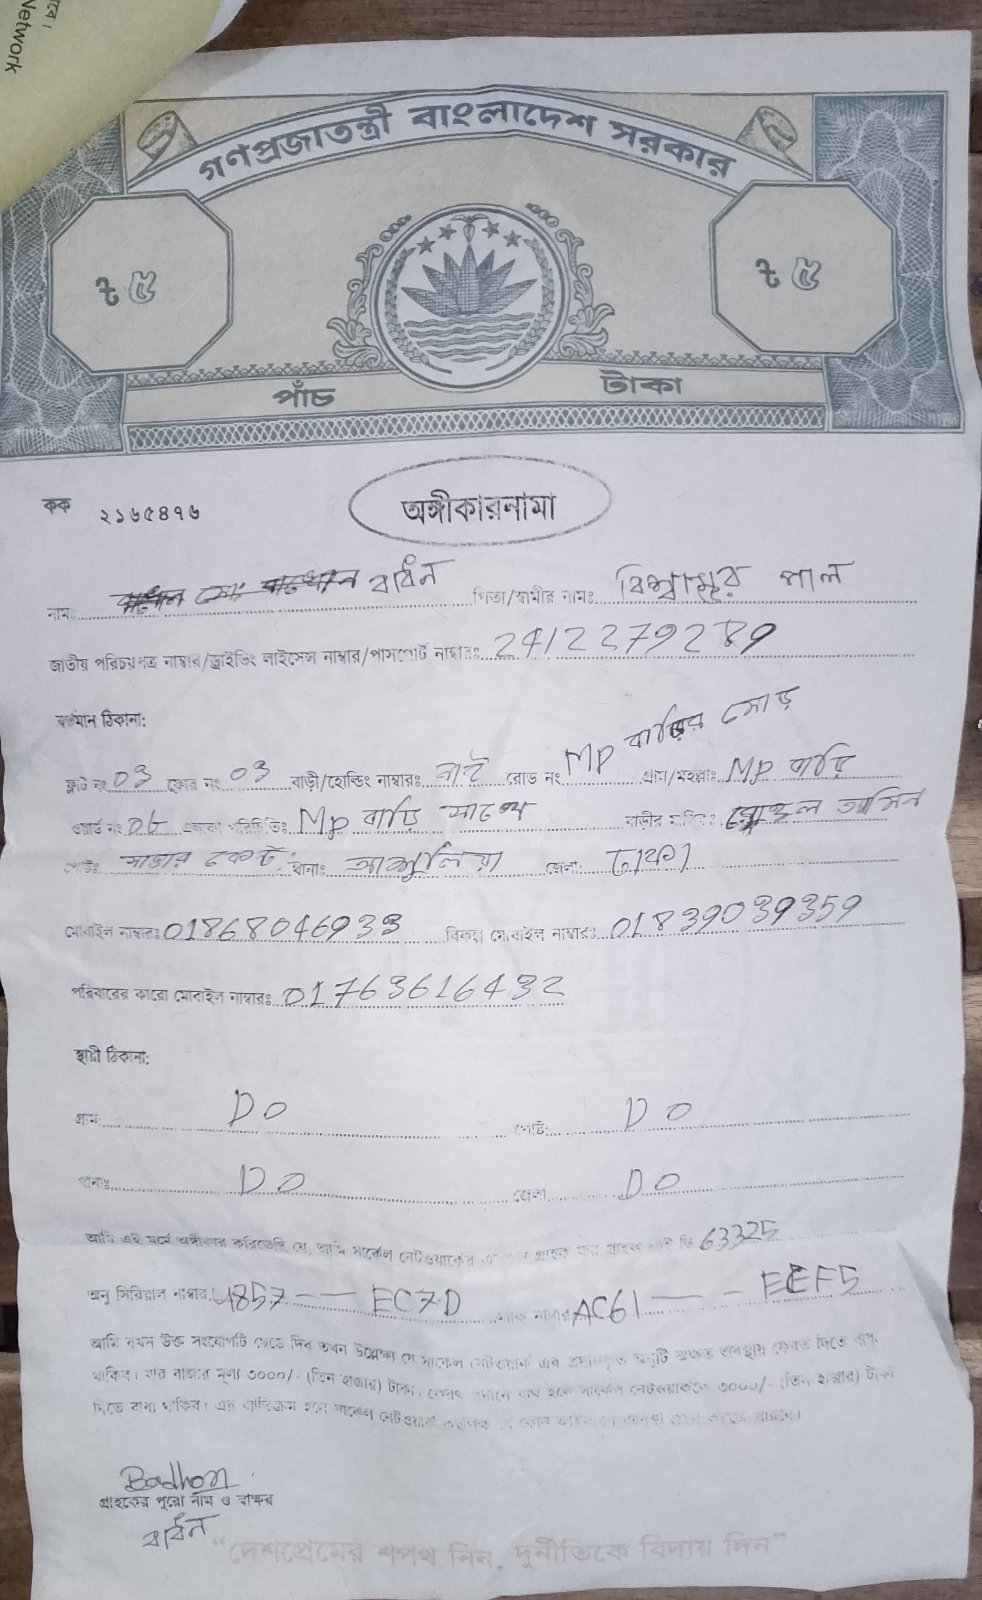 রে।
Network
গণপ্রজাতন্ত্রী বাংলাদেশ সরকার
৳ ৫ ৳ ৫
পাঁচ টাকা
কক ২১৬৫৪৭৬
অঙ্গীকারনামা
নামঃ বাধন পিতা/স্বামীর নামঃ পাল
জাতীয় পরিচয়পত্র নাম্বার/ড্রাইভিং লাইসেন্স নাম্বার/পাসপোর্ট নাম্বারঃ 2412279289
বর্তমান ঠিকানা:
ফ্লাট নং 03 ফ্লোর নং 03 বাড়ী/হোল্ডিং নাম্বারঃ নাই রোড নং MP বাড়ির মোড় গ্রাম/মহল্লাঃ MP বাড়ি
ওয়ার্ড নং 06 এলাকা পরিচিতিঃ MP বাড়ি বাড়ীর মালিকঃ আমিন
পোষ্টঃ সাভার কেন্ট. থানাঃ আশুলিয়া জেলা: ঢাকা
মোবাইল নাম্বারঃ 01868046933 বিকল্প মোবাইল নাম্বারঃ 01839039359
পরিবারের কারো মোবাইল নাম্বারঃ 01763616432
স্থায়ী ঠিকানা:
গ্রাম DO পোষ্ট: DO
থানাঃ DO জেলা DO
আমি এই মর্মে অঙ্গীকার করিতেছি যে, আমি সার্কেল নেটওয়ার্কের গ্রাহক আই ডি 63325
অনু সিরিয়াল নাম্বার: 4857 -- EC7D ম্যাক নাম্বার AC61 -- EEF5
আমি যখন উক্ত সংযোগটি ছেড়ে দিব তখন উল্লেখ্য যে সার্কেল নেটওয়ার্ক এর প্রদানকৃত অনুটি অক্ষত অবস্থায় ফেরত দিতে বাধ্য
থাকিব। যার বাজার মূল্য ৩০০০/- (তিন হাজার) টাকা। ফেরৎ প্রদানে ব্যর্থ হলে সার্কেল নেটওয়ার্ককে ৩০০০/- (তিন হাজার) টাকা
দিতে বাধ্য থাকিব। এর ব্যতিক্রম হলে সার্কেল নেটওয়ার্ক কর্তৃপক্ষ যে কোন
Badhon
গ্রাহকের পুরো নাম ও স্বাক্ষর
বাধন
"দেশপ্রেমের শপথ নিন, দুর্নীতিকে বিদায় দিন"